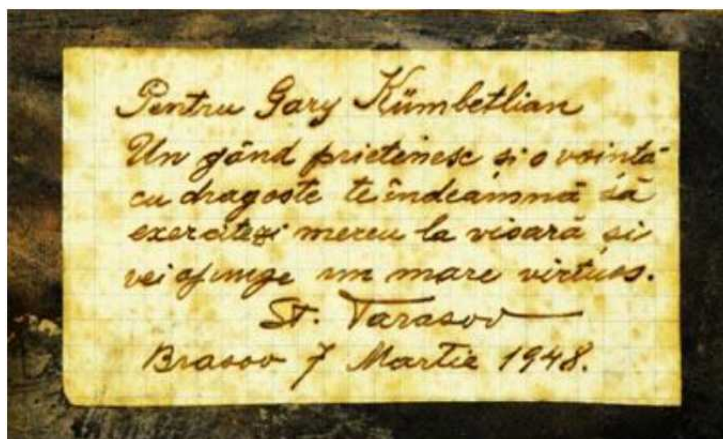 Pentru Gary Kümbetlian
Un gând prietenesc și o voință
cu dragoste te îndeamnă să
exercitezi mereu la vioară și
vei ajunge un mare virtuos.
St. Tarasov
Brasov 7 Martie 1948.